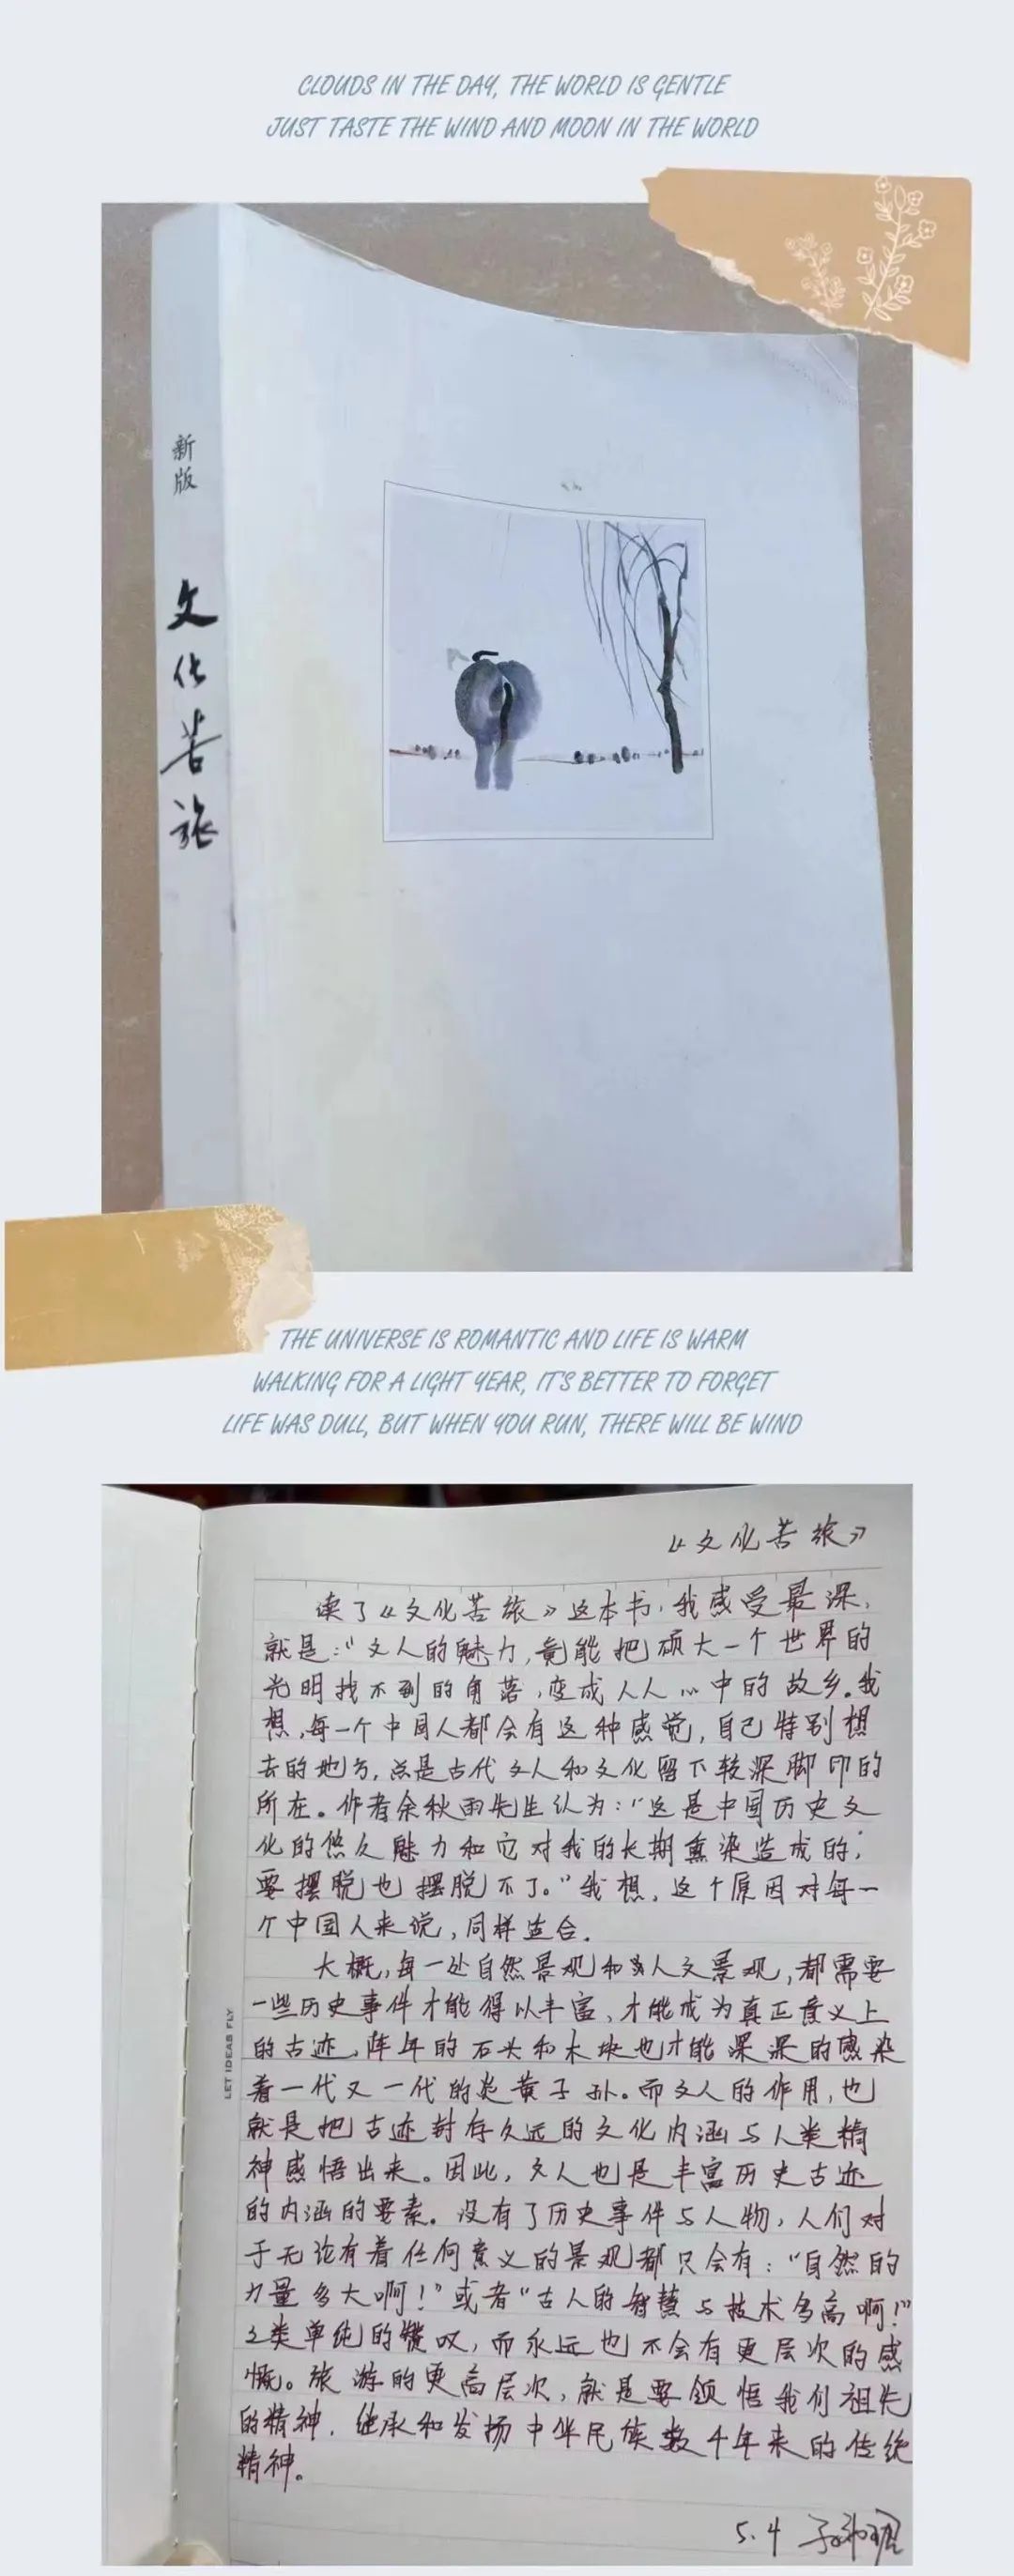 CLOUDS IN THE DAY, THE WORLD IS GENTLE
JUST TASTE THE WIND AND MOON IN THE WORLD
新版
文化苦旅
THE UNIVERSE IS ROMANTIC AND LIFE IS WARM
WALKING FOR A LIGHT YEAR, IT'S BETTER TO FORGET
LIFE WAS DULL, BUT WHEN YOU RUN, THERE WILL BE WIND
《文化苦旅》
读了《文化苦旅》这本书,我感受最深,
就是:"文人的魅力,竟能把硕大一个世界的
光明找不到的角落,变成人人心中的故乡。我
想,每一个中国人都会有这种感觉,自己特别想
去的地方,总是古代文人和文化留下较深脚印的
所在。作者余秋雨先生认为:"这是中国历史文
化的悠久魅力和它对我的长期熏染造成的,
要摆脱也摆脱不了。"我想,这个原因对每一
个中国人来说,同样适合.
大概,每一处自然景观和人文景观,都需要
一些历史事件才能得以丰富,才能成为真正意义上
的古迹,阵年的石头和木块也才能深深的感染
着一代又一代的炎黄子孙。而文人的作用,也
就是把古迹封存久远的文化内涵与人类精
神感悟出来。因此,文人也是丰富历史古迹
的内涵的要素。没有了历史事件与人物,人们对
于无论有着任何意义的景观都只会有:"自然的
力量多大啊!"或者"古人的智慧与技术多高啊!"
之类单纯的赞叹,而永远也不会有更层次的感
慨。旅游的更高层次,就是要领悟我们祖先
的精神,继承和发扬中华民族数千年来的传统
精神。
LET IDEAS FLY
5.4